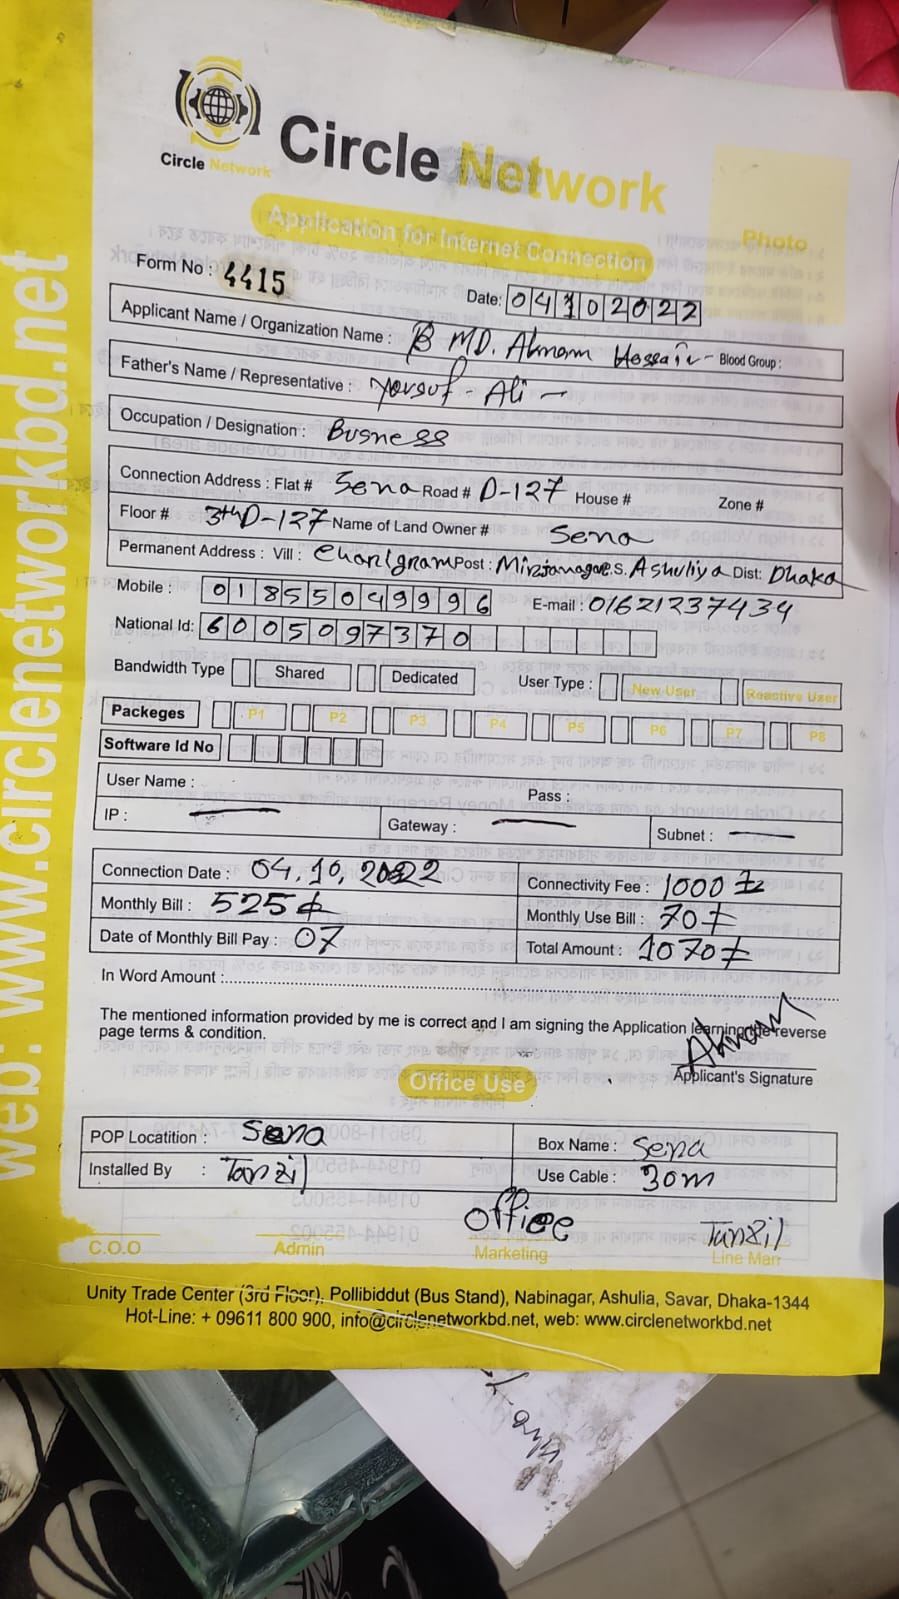 Circle Network
Circle Network
Application for Internet Connection
Photo
Form No : 4415
Date: 04102022
Applicant Name / Organization Name : MD. Akmam Hossain Blood Group :
Father's Name / Representative : Yousuf - Ali
Occupation / Designation : Busness
Connection Address : Flat # Sena Road # D-127 House # Zone #
Floor # 3th D-127 Name of Land Owner # Sena
Permanent Address : Vill : Post : Mirzanagar P.S. Ashuliya Dist: Dhaka
Mobile : 01855049996 E-mail : 01621237434
National Id: 6005097370
Bandwidth Type Shared Dedicated User Type : New User Reactive User
Packeges P1 P2 P3 P4 P5 P6 P7 P8
Software Id No
User Name : Pass :
IP : Gateway : Subnet :
Connection Date : 04,10,2022 Connectivity Fee : 1000
Monthly Bill : 525 Monthly Use Bill : 70
Date of Monthly Bill Pay : 07 Total Amount : 1070
In Word Amount :
The mentioned information provided by me is correct and I am signing the Application learning the reverse
page terms & condition.
Akmam
Applicant's Signature
Office Use
POP Locatition : Sena Box Name : Sena
Installed By : Tanzil Use Cable : 30m
Office Tanzil
C.O.O Admin Marketing Line Man
Unity Trade Center (3rd Floor), Pollibiddut (Bus Stand), Nabinagar, Ashulia, Savar, Dhaka-1344
Hot-Line: + 09611 800 900, info@circlenetworkbd.net, web: www.circlenetworkbd.net
web: www.circlenetworkbd.net